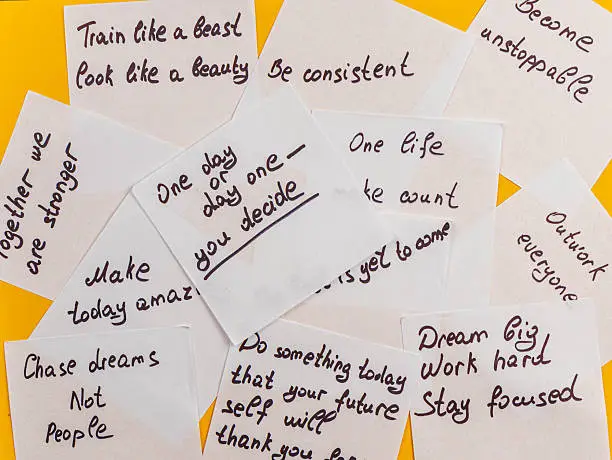 Train like a beast
look like a beauty
Be consistent
Become
unstoppable
Together we
are stronger
One day
or
day one —
you decide
One life
count
Outwork
everyone
Make
today
is yet to come
Chase dreams
Not
People
Do something today
that your future
self will
thank you
Dream big
Work hard
Stay focused